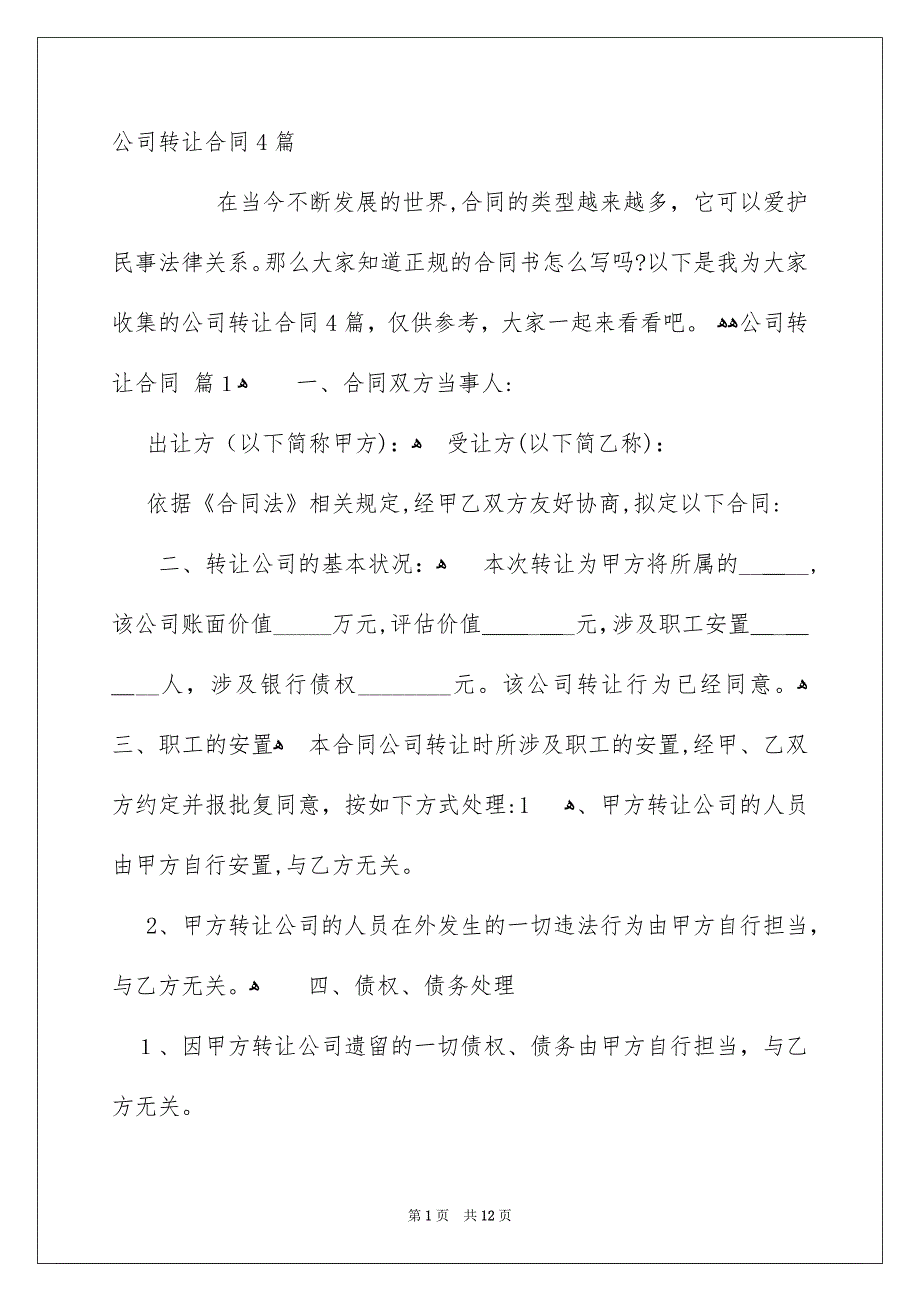 公司转让合同4篇
在当今不断发展的世界,合同的类型越来越多，它可以爱护
民事法律关系。那么大家知道正规的合同书怎么写吗?以下是我为大家
收集的公司转让合同4篇，仅供参考，大家一起来看看吧。 ﻫﻫ公司转
让合同 篇1ﻫ 一、合同双方当事人:
出让方（以下简称甲方)：ﻫ 受让方(以下简乙称)：
依据《合同法》相关规定,经甲乙双方友好协商,拟定以下合同:
二、转让公司的基本状况：ﻫ 本次转让为甲方将所属的______,
该公司账面价值_____万元,评估价值________元,涉及职工安置_____
____人，涉及银行债权________元。该公司转让行为已经同意。ﻫ
三、职工的安置ﻫ 本合同公司转让时所涉及职工的安置,经甲、乙双
方约定并报批复同意，按如下方式处理:1 ﻫ、甲方转让公司的人员
由甲方自行安置,与乙方无关。
2、甲方转让公司的人员在外发生的一切违法行为由甲方自行担当,
与乙方无关。ﻫ 四、债权、债务处理
1、因甲方转让公司遗留的一切债权、债务由甲方自行担当，与乙
方无关。
第1页 共12页